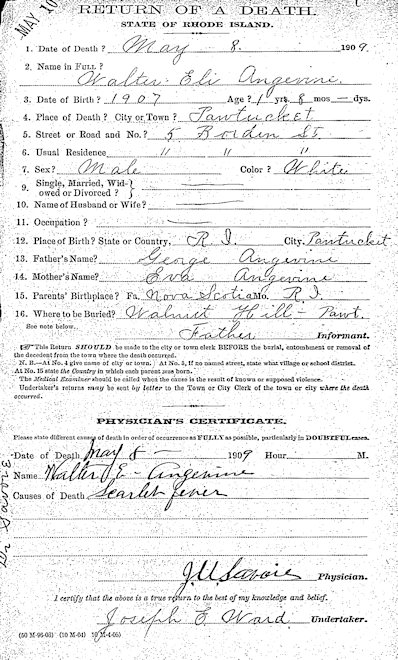 MAY 10
RETURN OF A DEATH.
STATE OF RHODE ISLAND.
1. Date of Death? May 8. 1909.
2. Name in FULL?
Walter Eli Angevine.
3. Date of Birth? 1907 Age? 1 yrs. 8 mos — dys.
4. Place of Death? City or Town? Pawtucket
5. Street or Road and No.? 5 Borden St.
6. Usual Residence " " "
7. Sex? Male Color? White
9. Single, Married, Wid-
owed or Divorced?
10. Name of Husband or Wife?
11. Occupation?
12. Place of Birth? State or Country, R. I. City, Pawtucket.
13. Father's Name? George Angevine
14. Mother's Name? Eva Angevine
15. Parents' Birthplace? Fa. Nova Scotia Mo. R.I.
16. Where to be Buried? Walnut Hill - Pawt.
See note below.
Father Informant.
This Return SHOULD be made to the city or town clerk BEFORE the burial, entombment or removal of
the decedent from the town where the death occurred.
N. B.—At No. 4 give name of city or town. At No. 5, if no named street, state what village or school district.
At No. 15 state the Country in which each parent was born.
The Medical Examiner should be called when the cause is the result of known or supposed violence.
Undertaker's returns may be sent by letter to the Town or City Clerk of the town or city where the death
occurred.
PHYSICIAN'S CERTIFICATE.
Please state different causes of death in order of occurrence as FULLY as possible, particularly in DOUBTFUL cases.
Date of Death May 8 — 1909 Hour M.
Name Walter E - Angevine
Causes of Death Scarlet fever
Dr Savoie
J.U. Savoie Physician.
I certify that the above is a true return to the best of my knowledge and belief.
Joseph E Ward Undertaker.
(50 M-96-03) (10 M-04) 10 M-4-05)